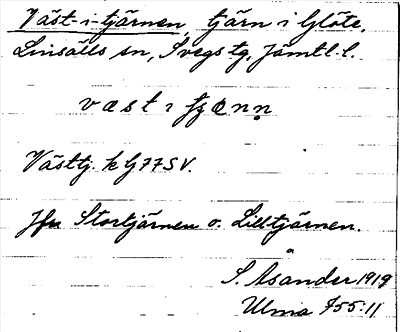 Väst-i-tjärnen, tjärn i Glöte,
Linsälls sn, Svegs tg, Jämtl. l.
væst ı
Västtj. k G 77 SV.
Jfr Stortjärnen o. Lilltjärnen.
S. Åsander 1919
Ulma 455:11